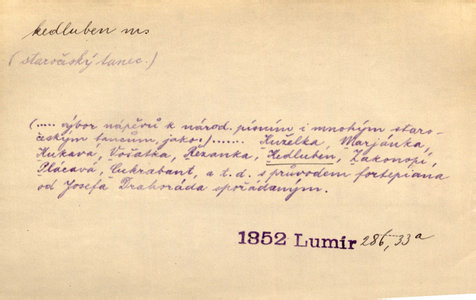 kedluben ms
(staročeský tanec.)
(..... výbor nápěvů k národ. písním i mnohým staro-
českým tancům, jako:) ....... Kuželka, Marjánka,
Kukavá, Vošatka, Řezanka, Kedluben, Zákonopí,
Plácavá, Cukrabant, a t. d. s průvodem fortepiana
od Josefa Drahoráda spořádaným.
1852 Lumír 286, 33a